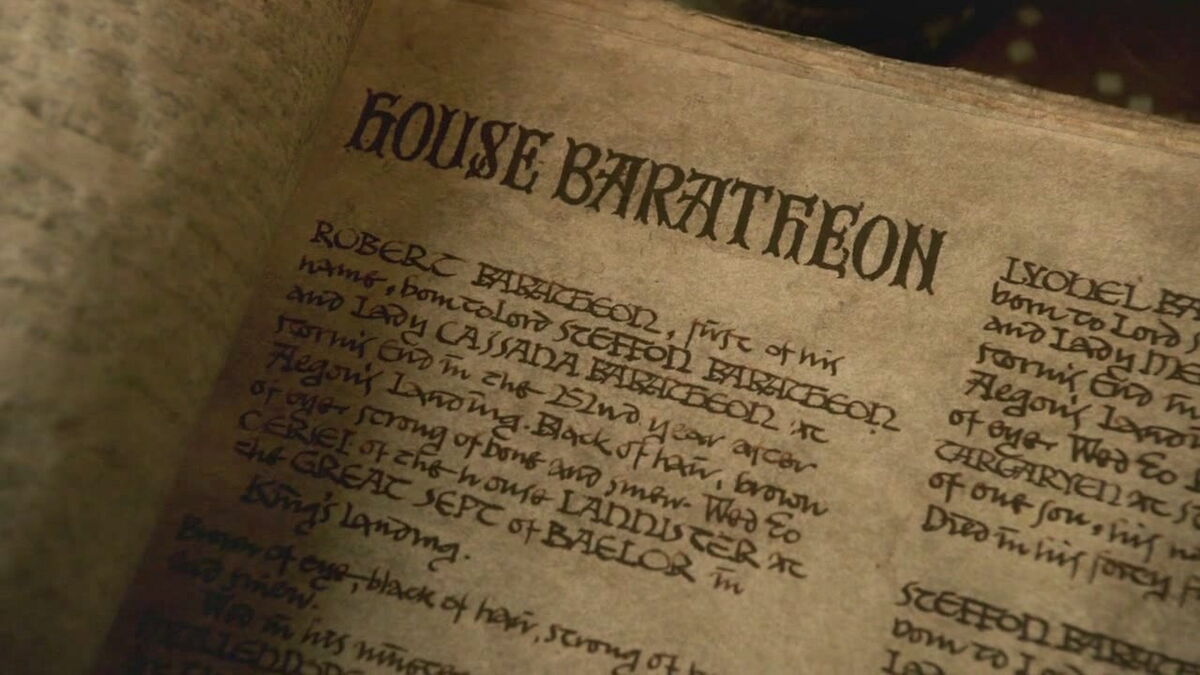 HOUSE BARATHEON
ROBERT BARATHEON, first of his
name, born to Lord STEFFON BARATHEON
and Lady CASSANA BARATHEON at
Storm's End in the 252nd year after
Aegon's Landing. Black of hair, brown
of eye, strong of bone and sinew. Wed to
CERSEI of the house LANNISTER at
the GREAT SEPT of BAELOR in
King's Landing.
Brown of eye, black of hair, strong of
and sinew.
Wed in his
LYONEL BA
born to Lord S
and Lady ME
Storm's End in
Aegon's Landi
of eye. Wed to
TARGARYEN at S
of one son, his n
Died in his forty f
STEFFON BARATH
born to Lo
La